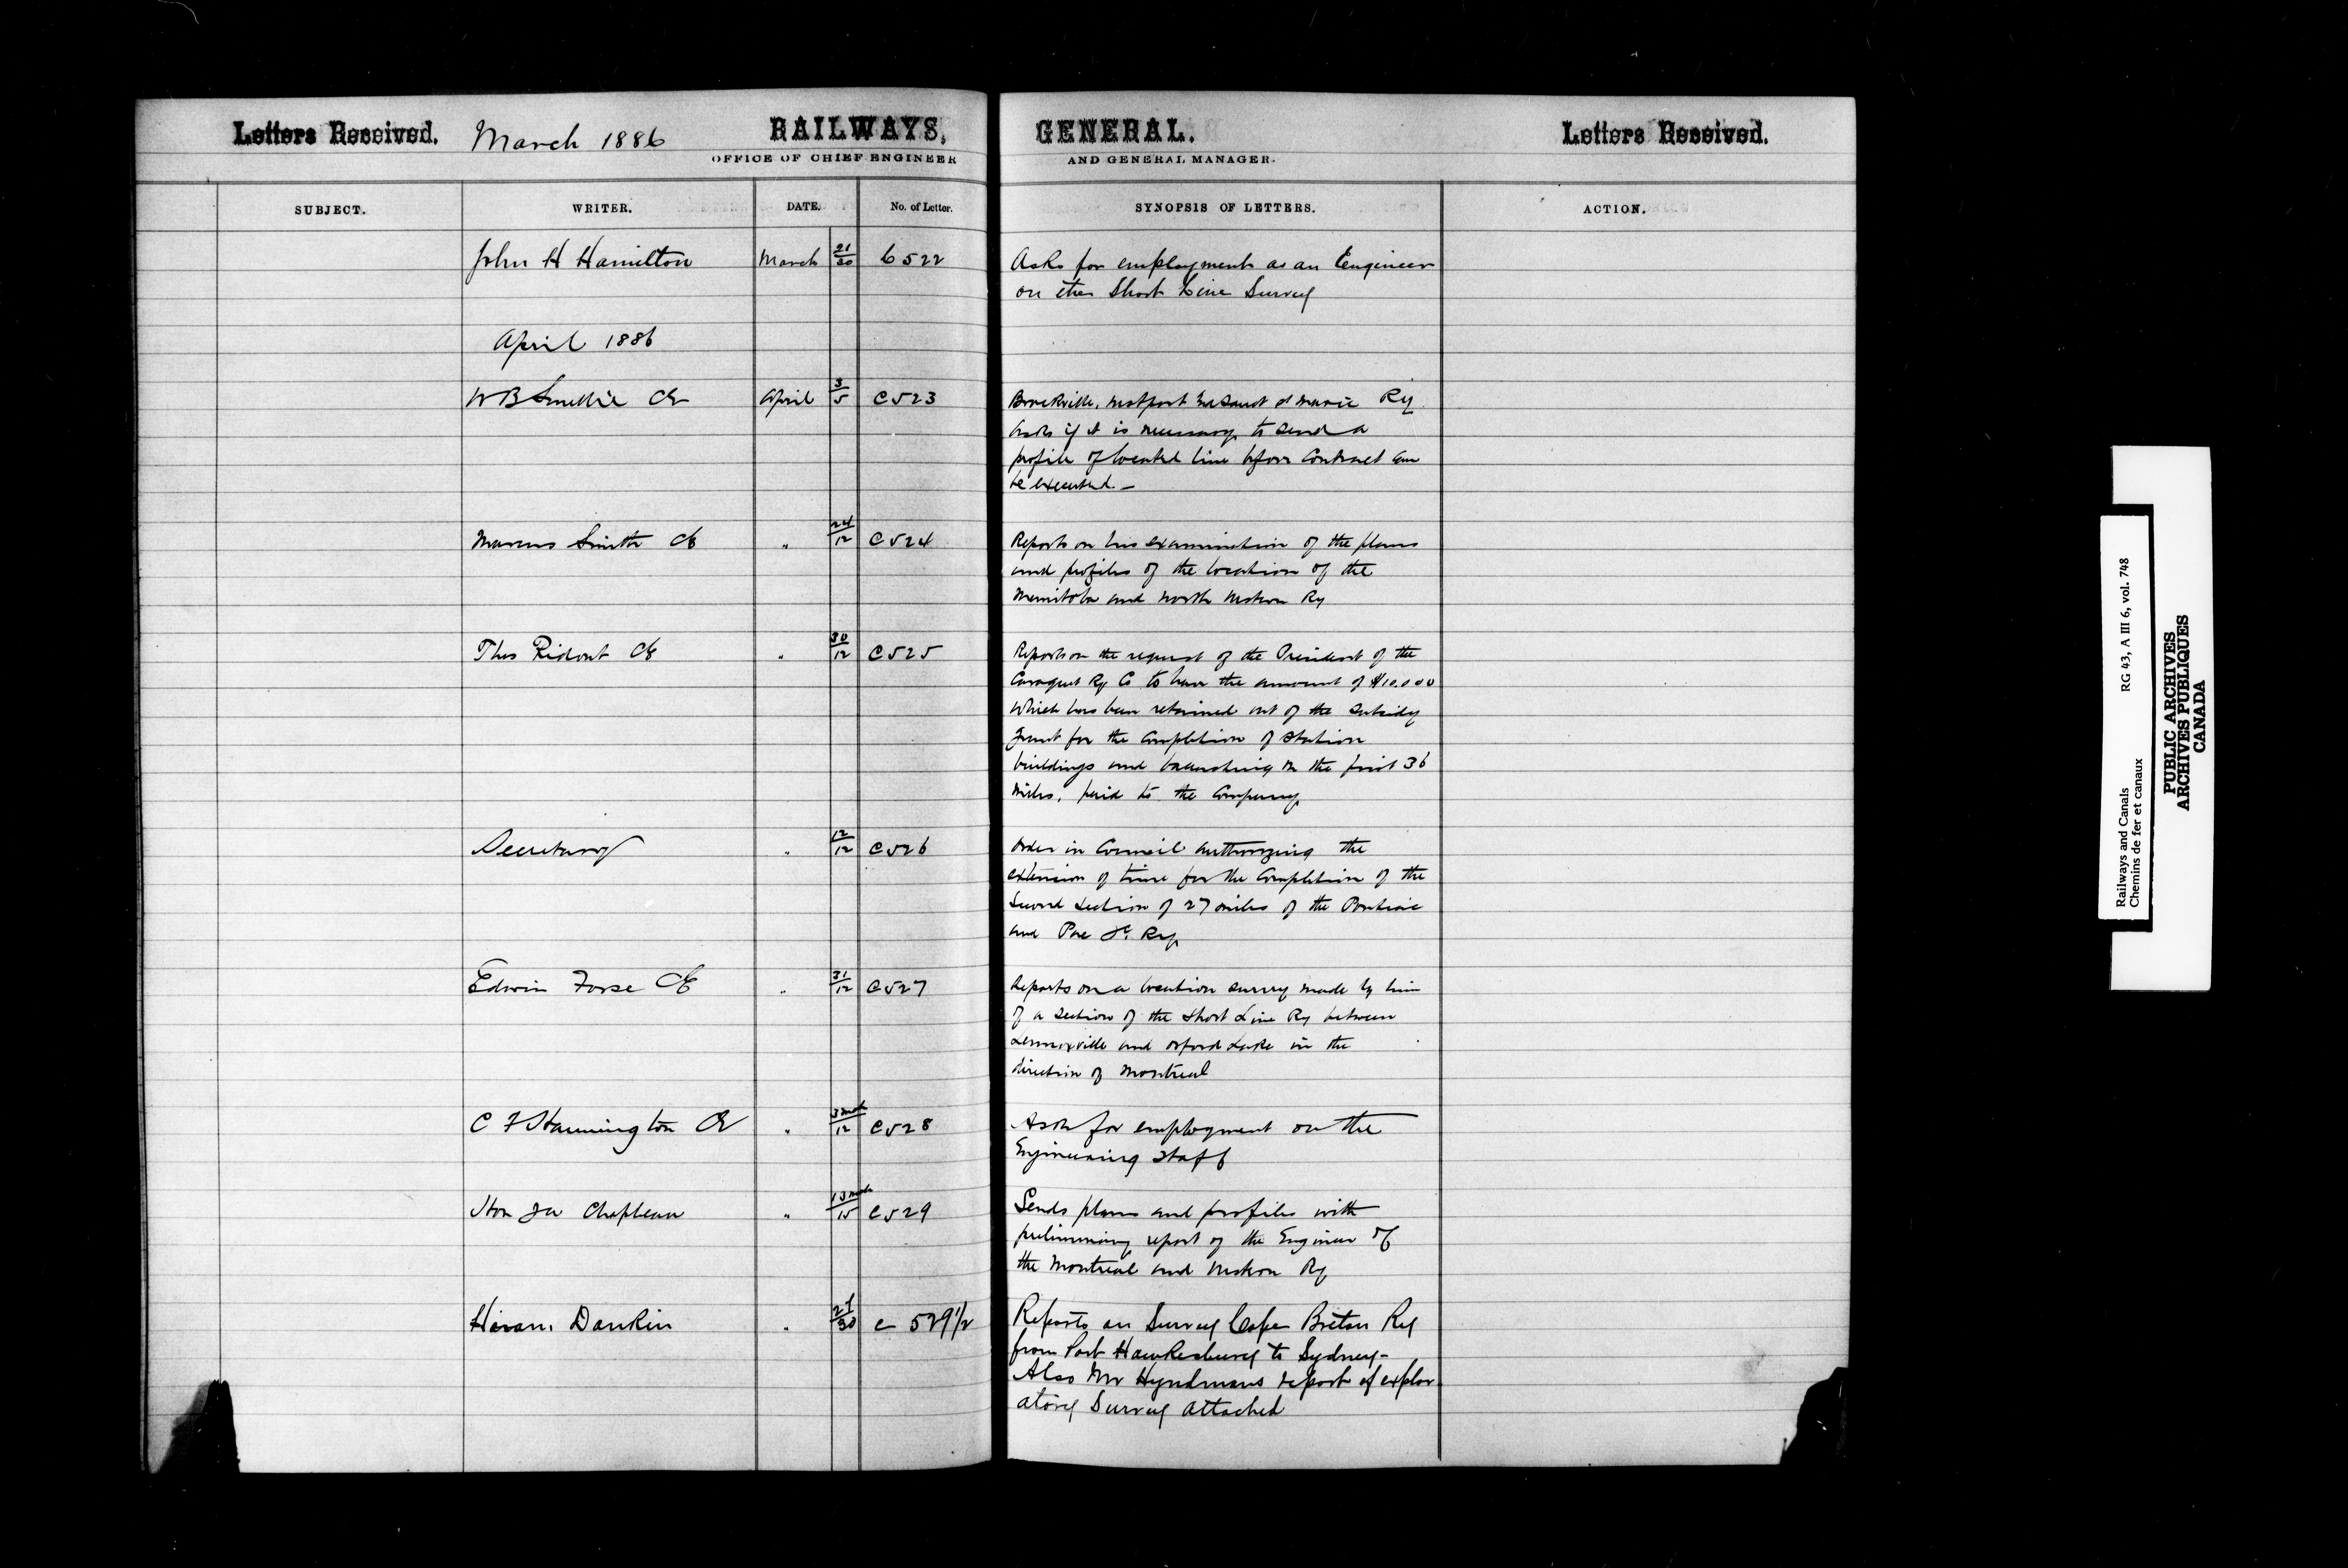 Letters Received. March 1886 RAILWAYS, GENERAL. Letters Received.
OFFICE OF CHIEF ENGINEER AND GENERAL MANAGER.
SUBJECT. WRITER. DATE. No. of Letter. SYNOPSIS OF LETTERS. ACTION.
John H Hamilton March 21/30 C522 Asks for employment as an Engineer
on the Short Line Survey
April 1886
W B Smellie CE April 3/5 C523 Brockville, Westport & Sault Ste Marie Ry
Asks if it is necessary to send a
profile of located line before Contract can
be executed.—
Marcus Smith CE " 24/12 C524 Reports on his examination of the plans
and profiles of the location of the
Manitoba and North Western Ry
Thos Ridout CE " 30/12 C525 Reports on the request of the President of the
Caraquet Ry Co to have the amount of $10.000
which has been retained out of the Subsidy
Grant for the Completion of Station
buildings and on the first 36
miles, paid to the Company
Secretary " 12/12 C526 Order in Council authorizing the
extension of time for the Completion of the
Second Section of 27 miles of the Pontiac
and Pac Jc Ry
Edwin Forse CE " 31/12 C527 Reports on a location survey made by him
of a section of the Short Line Ry between
Lennoxville and Orford Lake in the
direction of Montreal
C F Hannington CE " 3/12 C528 Asks for employment on the
Engineering Staff
Hon JA Chapleau " 13/15 C529 Sends plans and profiles with
preliminary report of the Engineer of
the Montreal and Western Ry
Hiram Donkin " 29/30 C 529 1/2 Reports on Survey Cape Breton Ry
from Port Hawkesbury to Sydney-
Also Mr Hyndmans report of explor
atory Survey attached
Railways and Canals RG 43, A III 6, vol. 748
Chemins de fer et canaux
PUBLIC ARCHIVES
ARCHIVES PUBLIQUES
CANADA